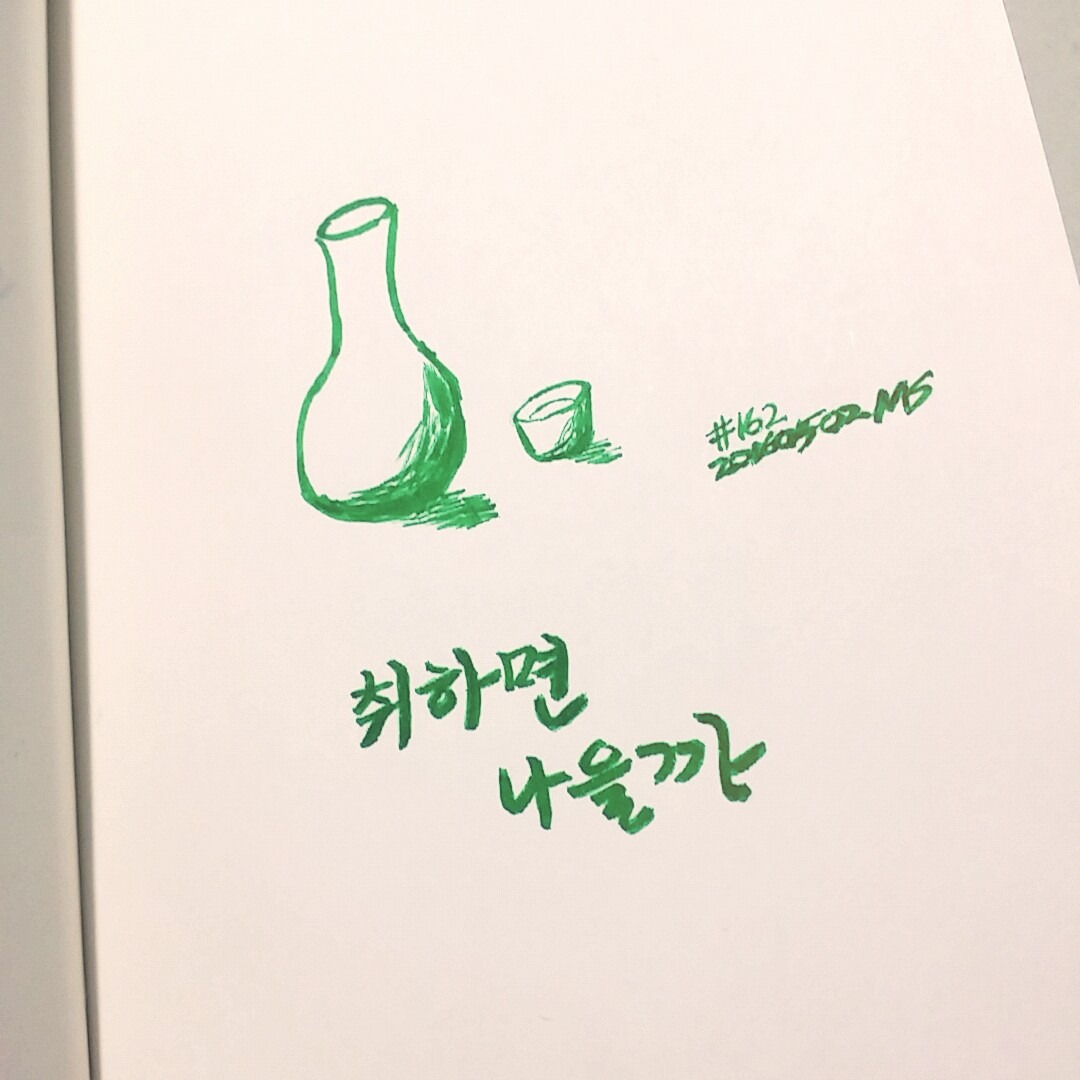 #162
20160502 MS
취하면
나을까